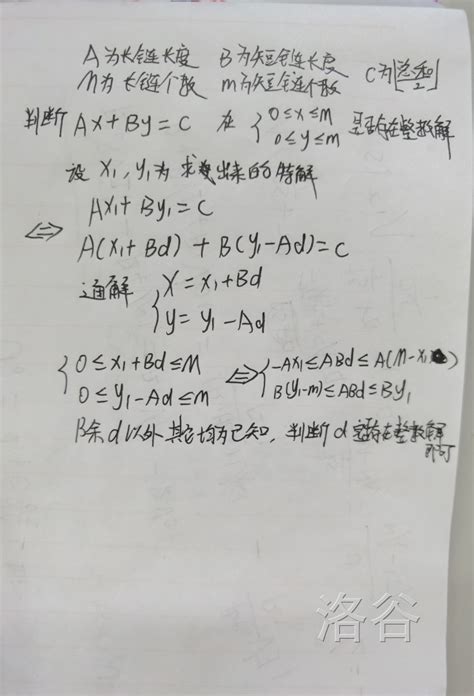 A为长链长度 B为短链长度
M为长链个数 m为短链个数 C为⌊总和/2⌋
判断 Ax+By=C 在 { 0≤x≤M 是否存在整数解
0≤y≤m
设 x₁, y₁为求出来的特解
Ax₁+By₁=C
⇔
A(x₁+Bd)+B(y₁-Ad)=C
通解 { x=x₁+Bd
y=y₁-Ad
{ 0≤x₁+Bd≤M ⇔ { -Ax₁≤ABd≤A(M-x₁)
0≤y₁-Ad≤m B(y₁-m)≤ABd≤By₁
除d以外其它均为已知, 判断d是否存在整数解
即可
洛谷